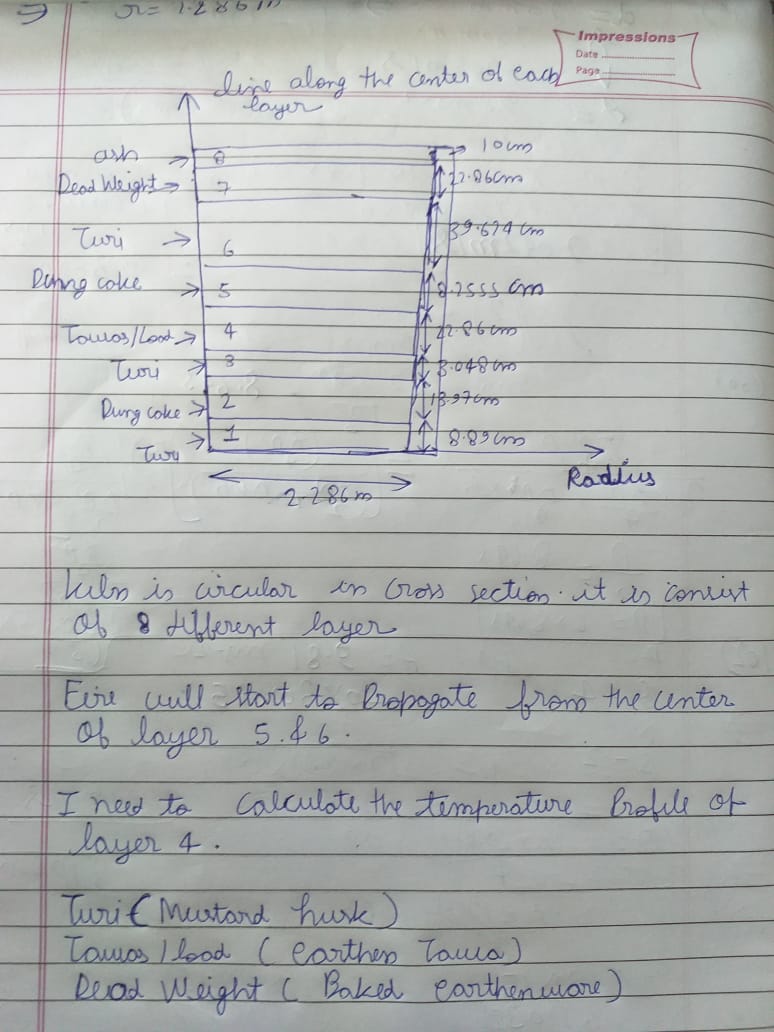 ⇒ r = 1.286 m
Impressions
Date
Page
line along the center of each
layer
ash → 8 → 10cm
Dead Weight → 7 22.86cm
Turi → 6 39.624 cm
Dung coke → 5 8.2555 cm
Tawas/Load → 4 22.86cm
Turi → 3 3.048cm
Dung coke → 2 13.97cm
Turi → 1 8.89cm
Radius
2.286m
kiln is circular in cross section. it is consist
of 8 different layer
Fire will start to Propogate from the center
of layer 5 & 6.
I need to calculate the temperature Profile of
layer 4.
Turi (Mustard husk)
Tawas / load ( earthen Tawa)
Dead Weight ( Baked earthenware)